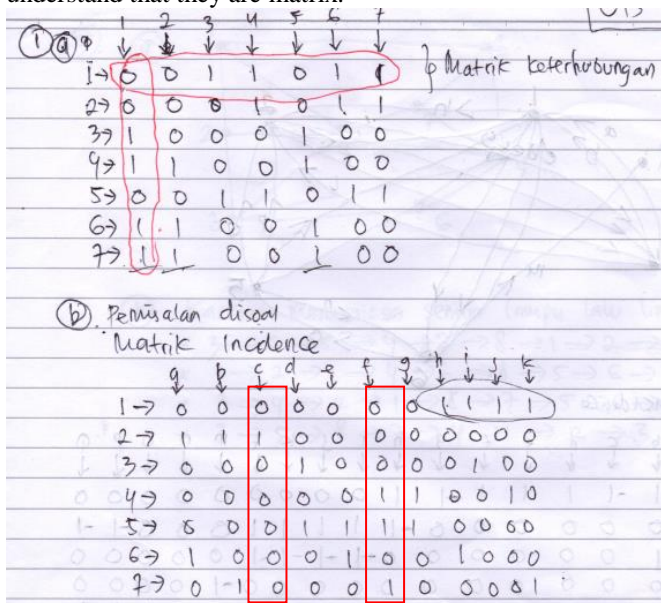 understand that they are matrix.
1 2 3 4 5 6 7
1 a
1→ 0 0 1 1 0 1 1 } Matrik keterhubungan
2→ 0 0 0 1 0 1 1
3→ 1 0 0 0 1 0 0
4→ 1 1 0 0 1 0 0
5→ 0 0 1 1 0 1 1
6→ 1 1 0 0 1 0 0
7→ 1 1 0 0 1 0 0
b. Pemisalan disoal
Matrik Incdence
a b c d e f g h i j k
1→ 0 0 0 0 0 0 0 1 1 1 1
2→ 1 1 1 0 0 0 0 0 0 0 0
3→ 0 0 0 1 0 0 0 0 1 0 0
4→ 0 0 0 0 0 1 1 0 0 1 0
5→ 0 0 0 1 1 1 1 0 0 0 0
6→ 1 0 0 0 1 0 0 1 0 0 0
7→ 0 1 0 0 0 1 0 0 0 0 1